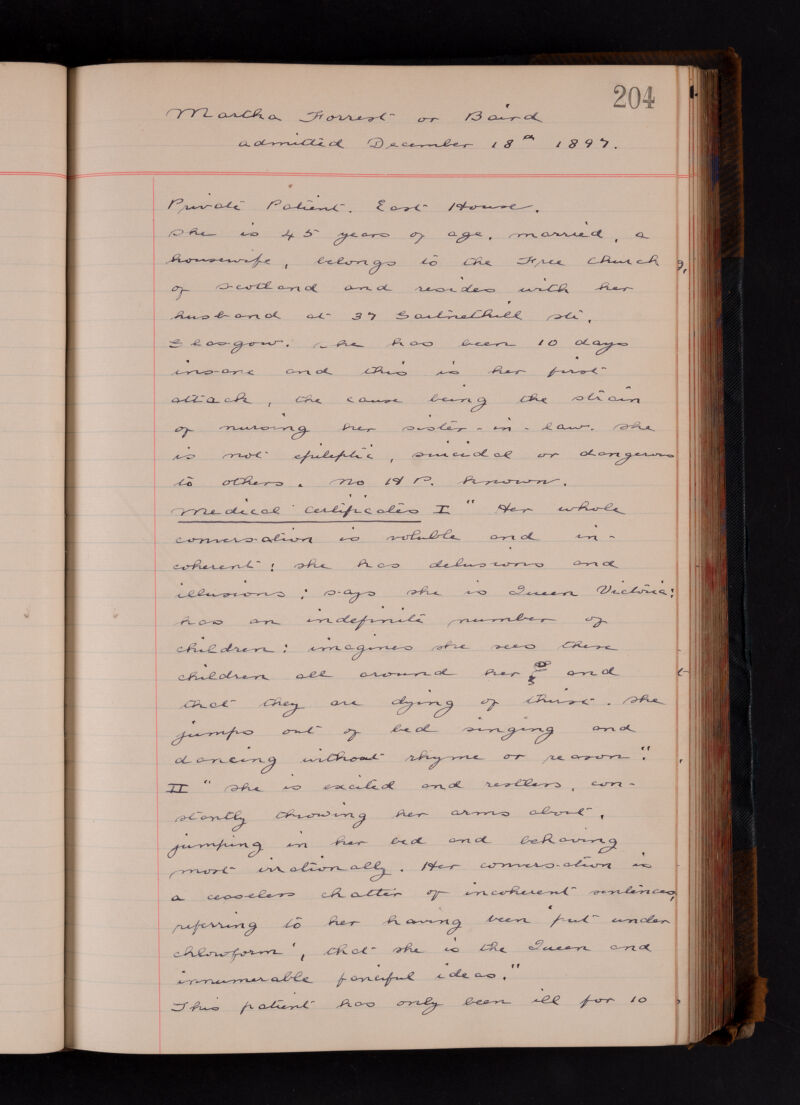 204
Martha Forrest or Baird
admitted December 18th 1897.
Private Patient. East House.
She is 45 years of age, married, a
housewife, belongs to the Free Church
of Scotland and resides with her
husband at 37 Garnethill St.,
Glasgow. She has been 10 days
insane and this is her first
attack, the cause being the strain
of nursing her sister-in-law. She
is not epileptic, suicidal or dangerous
to others. No H P. known.
Medical Certificates I "Her whole
conversation is voluble and in-
coherent: she has delusions and
illusions: says she is Queen Victoria:
has an indefinite number of
children: imagines she sees these
children all around her and
that they are dying of thirst. She
jumps out of bed singing and
dancing without rhyme or reason".
II "She is excited and restless, con-
stantly throwing her arms about,
jumping in her bed and behaving
most irrationally. Her conversation is
a ceaseless chatter of incoherent sentences,
referring to her having been 'put under
chloroform', that she is the Queen and
innumerable fanciful ideas."
This patient has only been ill for 10